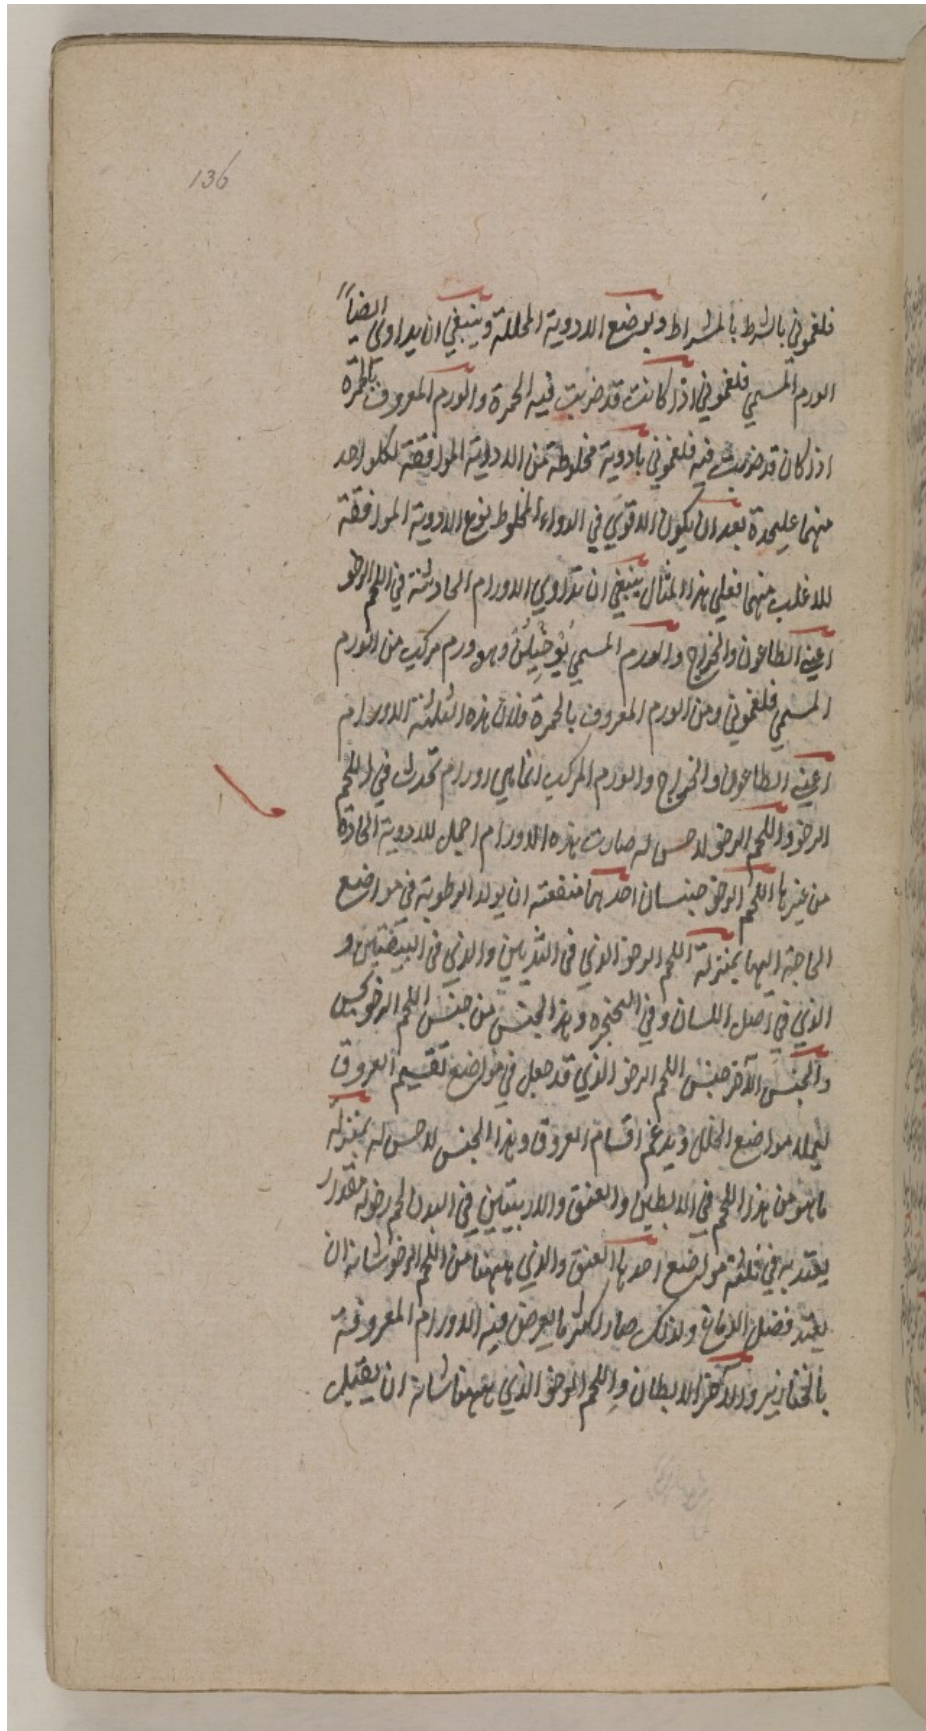 136
فلغموني بالشرط بالمشراط وبوضع الادوية المحللة وينبغي ان يداوى ايضاً
الورم المسمي فلغموني اذا كانت قد ضربت فيه الحمرة والورم المعروف بالحمرة
اذا كان قد ضربت فيه فلغموني بادوية مخلوطة من الادوية الموافقة لكلواحد
منهما عليحدة بعد ان يكون الاقوي في الدواء المخلوط نوع الادوية الموافقة
للاغلب منهما فعلي هذا المثال ينبغي ان تداوي الاورام الحادثة في اللحم الرخو
اعني الطاعون والخراج والورم المسمي بُوجَثِلُن وهو ورم مركب من الورم
المسمي فلغموني ومن الورم المعروف بالحمرة ولان هذه الثلثة الاورام
اعني الطاعون والخراج والورم المركب انما هي اورام تحدث في اللحم
الرخو واللحم الرخو لا حس له صارت هذه الاورام احمل للادوية الحادة
من غيرها اللحم الرخو جنسان احدهما منفعته ان يولد الرطوبة في مواضع
الحاجة اليها بمنزلة اللحم الرخو الذي في الثديين والذي في البيضتين و
الذي في اصل اللسان وفي الحنجره وهذا الجنس من جنس اللحم الرخو يحس
والجنس الآخر جنس اللحم الرخو الذي قد جعل في مواضع تقسيم العروق
ليملا مواضع الخلل ويدعم اقسام العروق وهذا الجنس لا حس له بمنزلة
ما هو من هذا اللحم في الابطين والعنق والاربيتين في البدن لحم رخو له مقدار
يعتد به في ثلثة مواضع احدها العنق والذي ههنا من اللحم الرخو شانه ان
يقبل فضل الدماغ ولذلك صار اكثر ما يعرض فيه الاورام المعروفة
بالخنازير والاخر الابطان واللحم الرخو الذي ههنا شانه ان يقبل